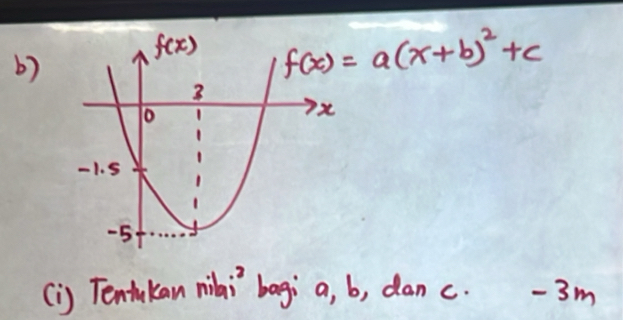 b)
f(x)
f(x) = a(x+b)² + c
3
0
x
-1.5
-5
(i) Tentukan nilai² bagi a, b, dan c. - 3m